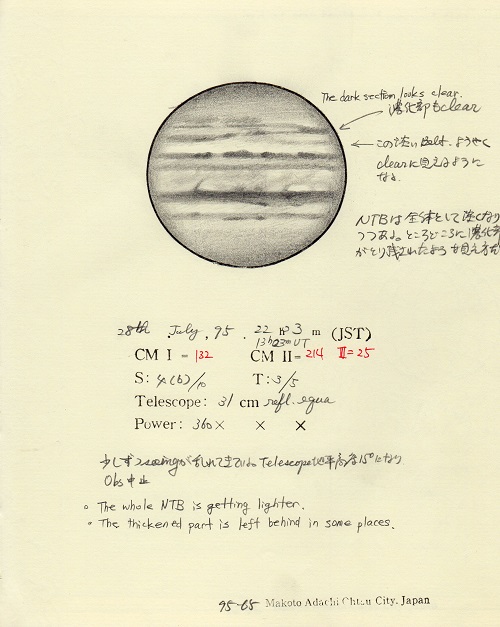 The dark section looks clear.
濃化部もclear
この淡いBelt、ようやく
clearに見えるように
なる。
NTBは全体として淡くなり
つつある。ところどころに濃化部
がとり残されたような見え方だ
28th July, 95. 22 h 3 m (JST)
13h03m UT
CM I = 132 CM II = 214 III = 25
S: 4(6)/10 T: 3/5
Telescope: 31 cm refl. equa
Power: 360× × ×
少しずつseeingが乱れてきている。Telescope地平高度15°になり
Obs中止
◦ The whole NTB is getting lighter.
◦ The thickened part is left behind in some places.
95-65 Makoto Adachi Ohtsu City. Japan